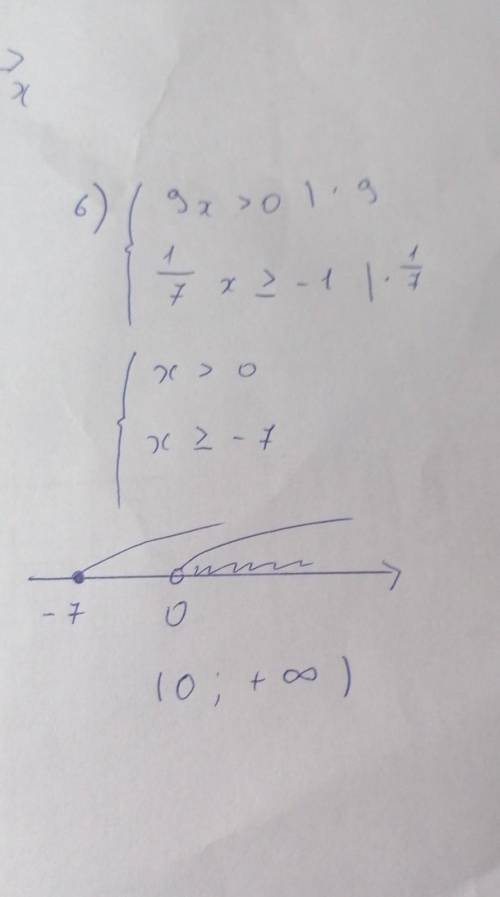 >
x
б) { 9x > 0 | · 9
1/7 x ≥ -1 | · 1/7
{ x > 0
x ≥ -7
-7 0
(0; +∞)